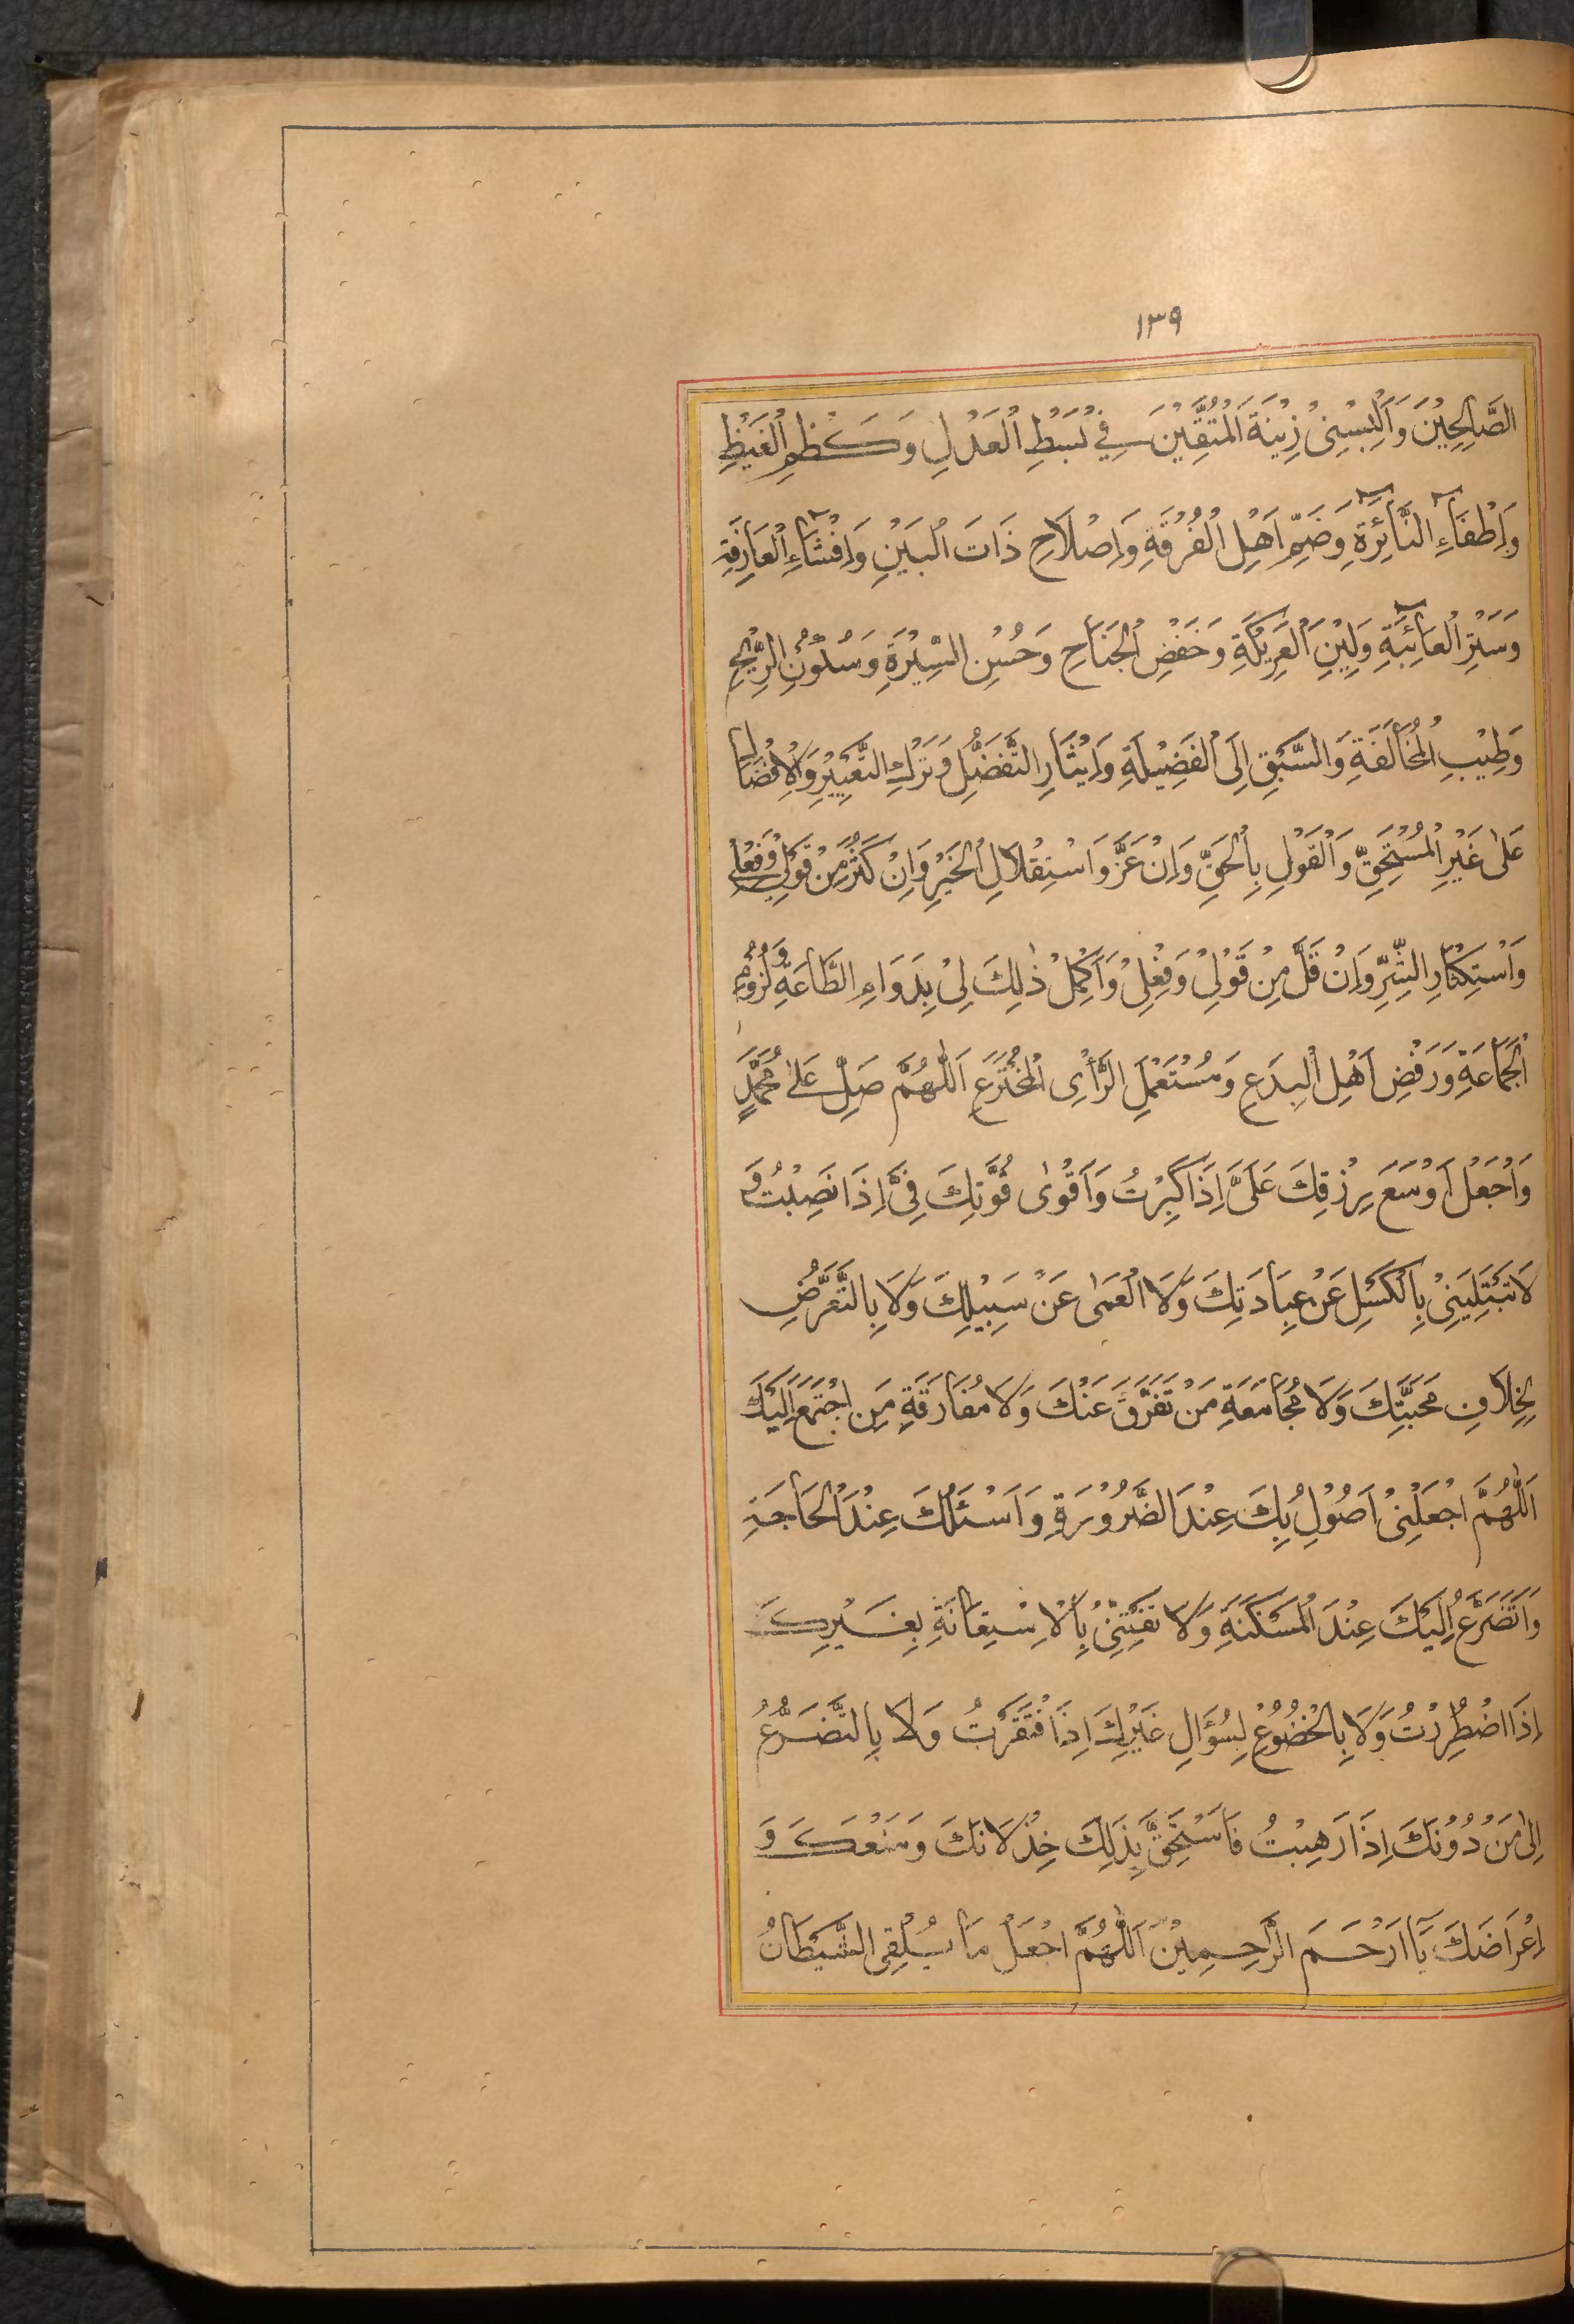 ١٣٩
الصَّالِحِيْنَ وَاَلْبِسْنِىْ زِيْنَةَ الْمُتَّقِيْنَ فِيْ بَسْطِ الْعَدْلِ وَكَظْمِ الْغَيْظِ
وَاِطْفَآءِ النَّآئِرَةِ وَضَمِّ اَهْلِ الْفُرْقَةِ وَاِصْلَاحِ ذَاتَ الْبَيْنِ وَاِفْشَآءِ الْعَارِفَةِ
وَسَتْرِ الْعَآئِبَةِ وَلِيْنِ الْعَرِيْكَةِ وَخَفْضِ الْجَنَاحِ وَحُسْنِ السِّيْرَةِ وَسُكُوْنِ الرِّيْحِ
وَطِيْبِ الْمُخَالَفَةِ وَالسَّبْقِ اِلَى الْفَضِيْلَةِ وَاِيْثَارِ التَّفَضُّلِ وَتَرْكِ التَّعْيِيْرِ وَالْاِفْضَالِ
عَلٰى غَيْرِ الْمُسْتَحِقِّ وَالْقَوْلِ بِالْحَقِّ وَاِنْ عَزَّ وَاسْتِقْلَالِ الْخَيْرِ وَاِنْ كَثُرَ مِنْ قَوْلِيْ وَفِعْلِيْ
وَاسْتِكْثَارِ الشَّرِّ وَاِنْ قَلَّ مِنْ قَوْلِىْ وَفِعْلِىْ وَاَكْمِلْ ذٰلِكَ لِىْ بِدَوَامِ الطَّاعَةِ وَلُزُوْمِ
الْجَمَاعَةِ وَرَفْضِ اَهْلِ الْبِدَعِ وَمُسْتَعْمِلِ الرَّأْىِ الْمُخْتَرَعِ اَللّٰهُمَّ صَلِّ عَلٰى مُحَمَّدٍ
وَاجْعَلْ اَوْسَعَ رِزْقِكَ عَلَىَّ اِذَا كَبِرْتُ وَاَقْوٰى قُوَّتِكَ فِىَّ اِذَا نَصِبْتُ وَ
لَا تَبْتَلِيَنِّىْ بِالْكَسَلِ عَنْ عِبَادَتِكَ وَلَا الْعَمٰى عَنْ سَبِيْلِكَ وَلَا بِالتَّعَرُّضِ
لِخِلَافِ مَحَبَّتِكَ وَلَا مُجَامَعَةِ مَنْ تَفَرَّقَ عَنْكَ وَلَا مُفَارَقَةِ مَنِ اجْتَمَعَ اِلَيْكَ
اَللّٰهُمَّ اجْعَلْنِىْ اَصُوْلُ بِكَ عِنْدَ الضَّرُوْرَةِ وَاَسْئَلُكَ عِنْدَ الْحَاجَةِ
وَاَتَضَرَّعُ اِلَيْكَ عِنْدَ الْمَسْكَنَةِ وَلَا تَفْتِنِّىْ بِالْاِسْتِعَانَةِ بِغَيْرِكَ
اِذَا اضْطُرِرْتُ وَلَا بِالْخُضُوْعِ لِسُؤَالِ غَيْرِكَ اِذَا فْتَقَرْتُ وَلَا بِالتَّضَرُّعِ
اِلٰى مَنْ دُوْنَكَ اِذَا رَهِبْتُ فَاَسْتَحِقَّ بِذٰلِكَ خِذْلَانَكَ وَمَنْعَكَ وَ
اِعْرَاضَكَ يَآ اَرْحَمَ الرَّاحِمِيْنَ اَللّٰهُمَّ اجْعَلْ مَا يُلْقِى الشَّيْطَانُ